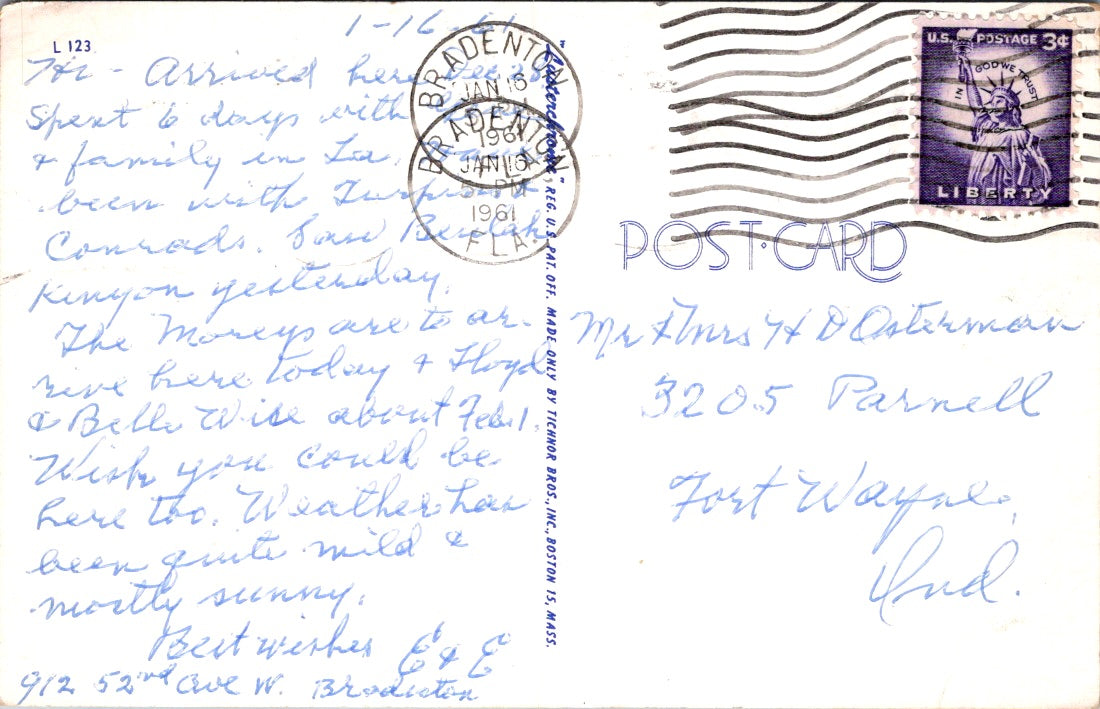 L 123
1-16-61
Hi - Arrived here Dec 28.
Spent 6 days with
& family in La.
been with Turpin &
Conrads. Saw Beulah
Kenyon yesterday.
The Moreys are to ar-
rive here today & Floyd
& Belle Wise about Feb. 1.
Wish you could be
here too. Weather has
been quite mild &
mostly sunny.
Best wishes E & E
912 52nd Ave W. Bradenton
BRADENTON
JAN 16
1961
BRADENTON
JAN 16
5 PM
1961
FLA.
REG. U.S. PAT. OFF. MADE ONLY BY TICHNOR BROS., INC., BOSTON 15, MASS.
U.S. POSTAGE 3¢
IN GOD WE TRUST
LIBERTY
POST CARD
Mr & Mrs H D Osterman
3205 Parnell
Fort Wayne,
Ind.